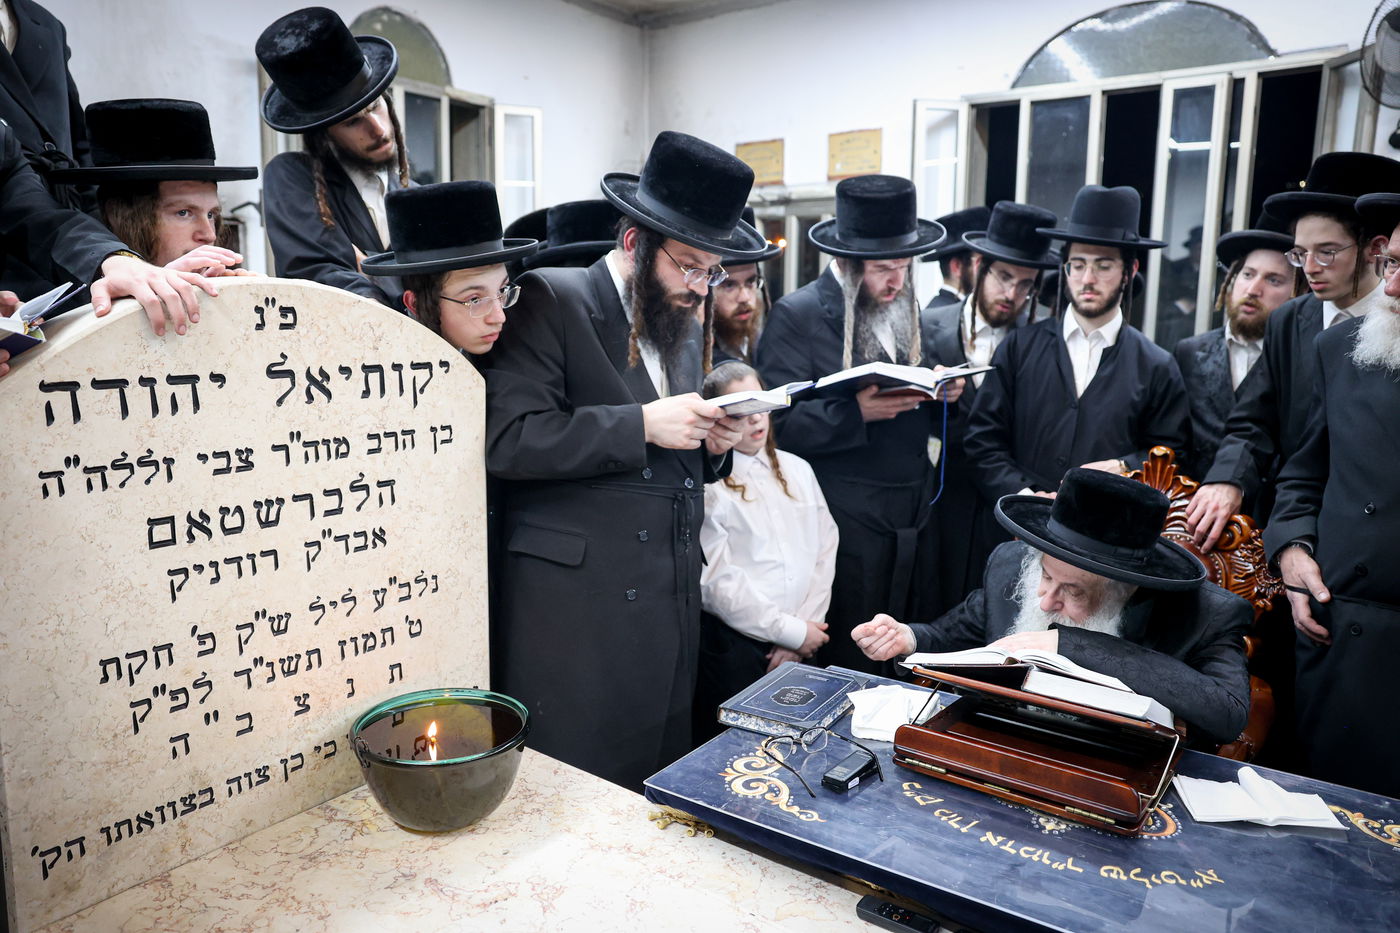 פ"נ
יקותיאל יהודה
בן הרב מוה"ר צבי זללה"ה
הלברשטאם
אבד"ק רודניק
נלב"ע ליל ש"ק פ' חקת
ט' תמוז תשנ"ד לפ"ק
ת נ צ ב "ה
כי כן צוה בצוואתו הק'
כ"ק מרן אדמו"ר שליט"א